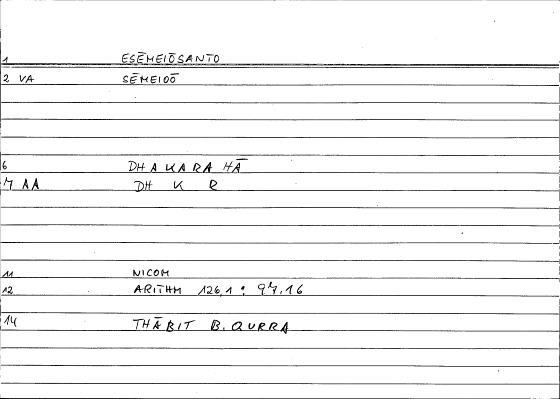 1 ESĒMEIŌSANTO
2 VA SĒMEIOŌ
6 DHAKARAHĀ
7 AA DH K R
11 NICOM
12 ARITHM 126,1 : 97,16
14 THĀBIT B. QURRA